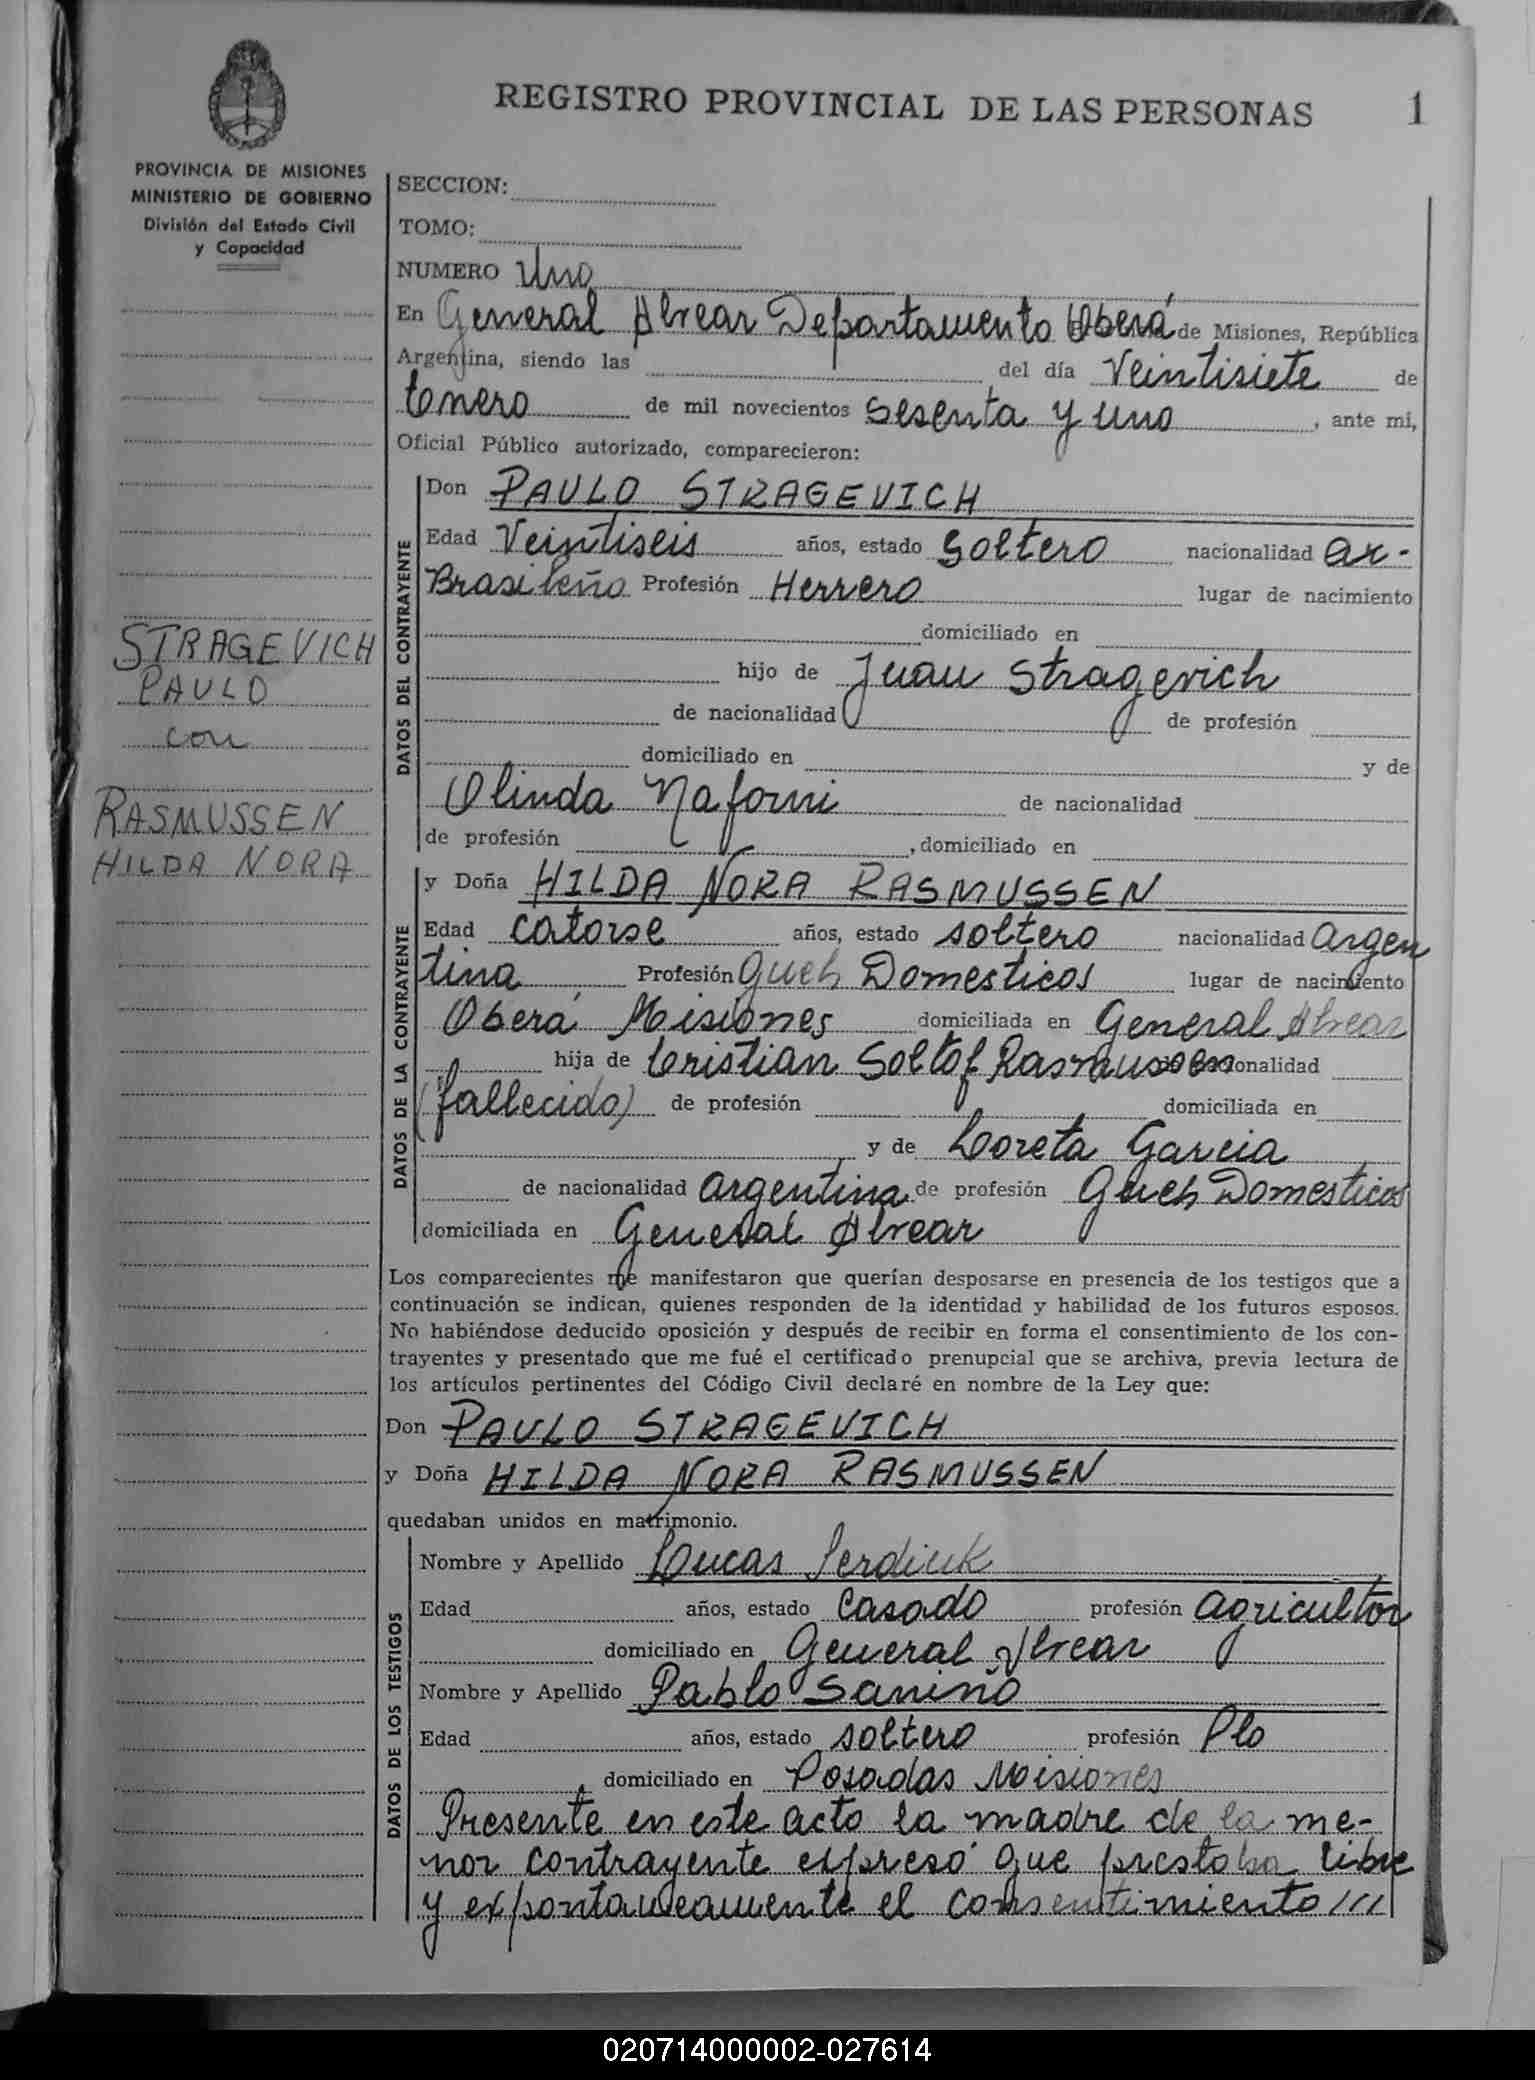 REGISTRO PROVINCIAL DE LAS PERSONAS 1
PROVINCIA DE MISIONES
MINISTERIO DE GOBIERNO
División del Estado Civil
y Capacidad
SECCION:
TOMO:
NUMERO Uno
En General Alvear Departamento Oberá de Misiones, República
Argentina, siendo las del día Veintisiete de
Enero de mil novecientos Sesenta y uno, ante mi,
Oficial Público autorizado, comparecieron:
DATOS DEL CONTRAYENTE
Don PAULO STRAGEVICH
Edad Veintiseis años, estado Soltero nacionalidad
Brasileño Profesión Herrero lugar de nacimiento
domiciliado en
hijo de Juan Stragevich
de nacionalidad de profesión
domiciliado en y de
Olinda de nacionalidad
de profesión , domiciliado en
STRAGEVICH
PAULO
con
RASMUSSEN
HILDA NORA
DATOS DE LA CONTRAYENTE
y Doña HILDA NORA RASMUSSEN
Edad catorse años, estado soltero nacionalidad Argen
tina Profesión Queh Domesticos lugar de nacimiento
Oberá Misiones domiciliada en General Alvear
hija de Cristian Soltof Rasmussen nacionalidad
(fallecido) de profesión domiciliada en
y de Loreta Garcia
de nacionalidad argentina de profesión Queh Domesticos
domiciliada en General Alvear
Los comparecientes me manifestaron que querían desposarse en presencia de los testigos que a
continuación se indican, quienes responden de la identidad y habilidad de los futuros esposos.
No habiéndose deducido oposición y después de recibir en forma el consentimiento de los con-
trayentes y presentado que me fué el certificado prenupcial que se archiva, previa lectura de
los artículos pertinentes del Código Civil declaré en nombre de la Ley que:
Don PAULO STRAGEVICH
y Doña HILDA NORA RASMUSSEN
quedaban unidos en matrimonio.
DATOS DE LOS TESTIGOS
Nombre y Apellido Lucas Serdiuk
Edad años, estado Casado profesión agricultor
domiciliado en General Alvear
Nombre y Apellido Pablo Saniño
Edad años, estado soltero profesión Plo
domiciliado en Posadas Misiones
Presente en este acto la madre de la me-
nor contrayente expresó que prestaba libre
y expontaneamente el consentimiento ///
020714000002-027614